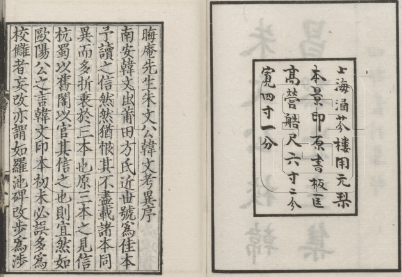 上海涵芬樓用元栞
本景印原書板匡
高營造尺六寸二分
寬四寸一分
晦庵先生朱文公韓文考異序
南安韓文出莆田方氏近世號為佳本
予讀之信然然猶恨其不盡載諸本同
異而多折衷於三本也原三本之見信
杭蜀以舊閣以官其信之也則宜然如
歐陽公之言韓文印本初未必誤多為
校讎者妄改亦謂如羅池碑改步為涉